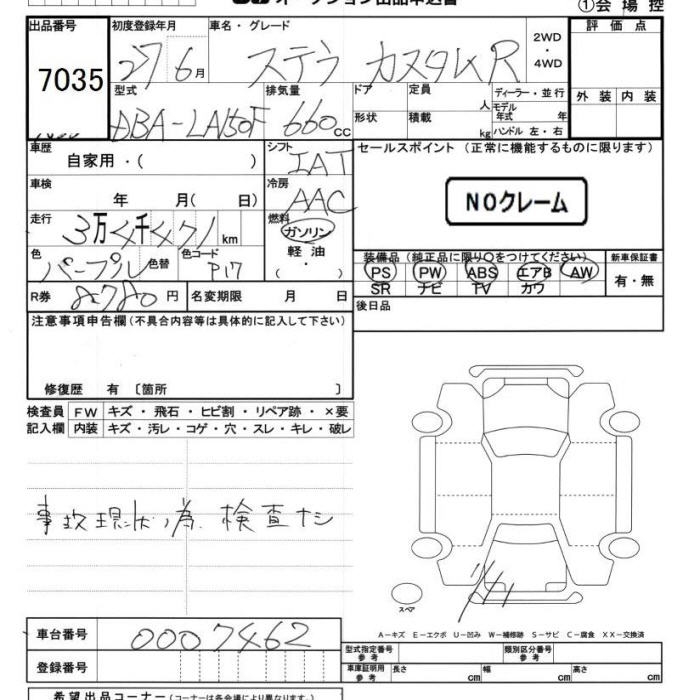 オークション出品申込書
①会場控
出品番号
7035
初度登録年月
27 6月
車名・グレード
ステラ カスタム R
2WD
・
4WD
評価点
外装 内装
型式
DBA-LA150F
排気量
660 CC
ドア
形状
定員
人
積載
kg
ディーラー・並行
モデル
年式 年
ハンドル 左・右
車歴
自家用・( )
シフト
IAT
セールスポイント (正常に機能するものに限ります)
NOクレーム
車検
年 月( 日)
冷房
AAC
走行
km
燃料
ガソリン
軽油
( ・ )
色
パープル
色替
色コード
P17
装備品 (純正品に限り○をつけてください)
PS PW ABS エアB AW
SR ナビ TV カワ
新車保証書
有・無
R券
8780 円
名変期限 月 日
後日品
注意事項申告欄(不具合内容等は具体的に記入して下さい)
修復歴 有 〔箇所 〕
検査員 FW キズ・飛石・ヒビ割・リペア跡・×要
記入欄 内装 キズ・汚レ・コゲ・穴・スレ・キレ・破レ
事故現状ノ為、検査ナシ
スペア
A－キズ E－エクボ U－凹み W－補修跡 S－サビ C－腐食 XX－交換済
車台番号
0007462
登録番号
型式指定番号
参考
類別区分番号
参考
車庫証明用
参考
長さ cm 幅 cm 高さ cm
希望出品コーナー(コーナーは各会場により異なります。)